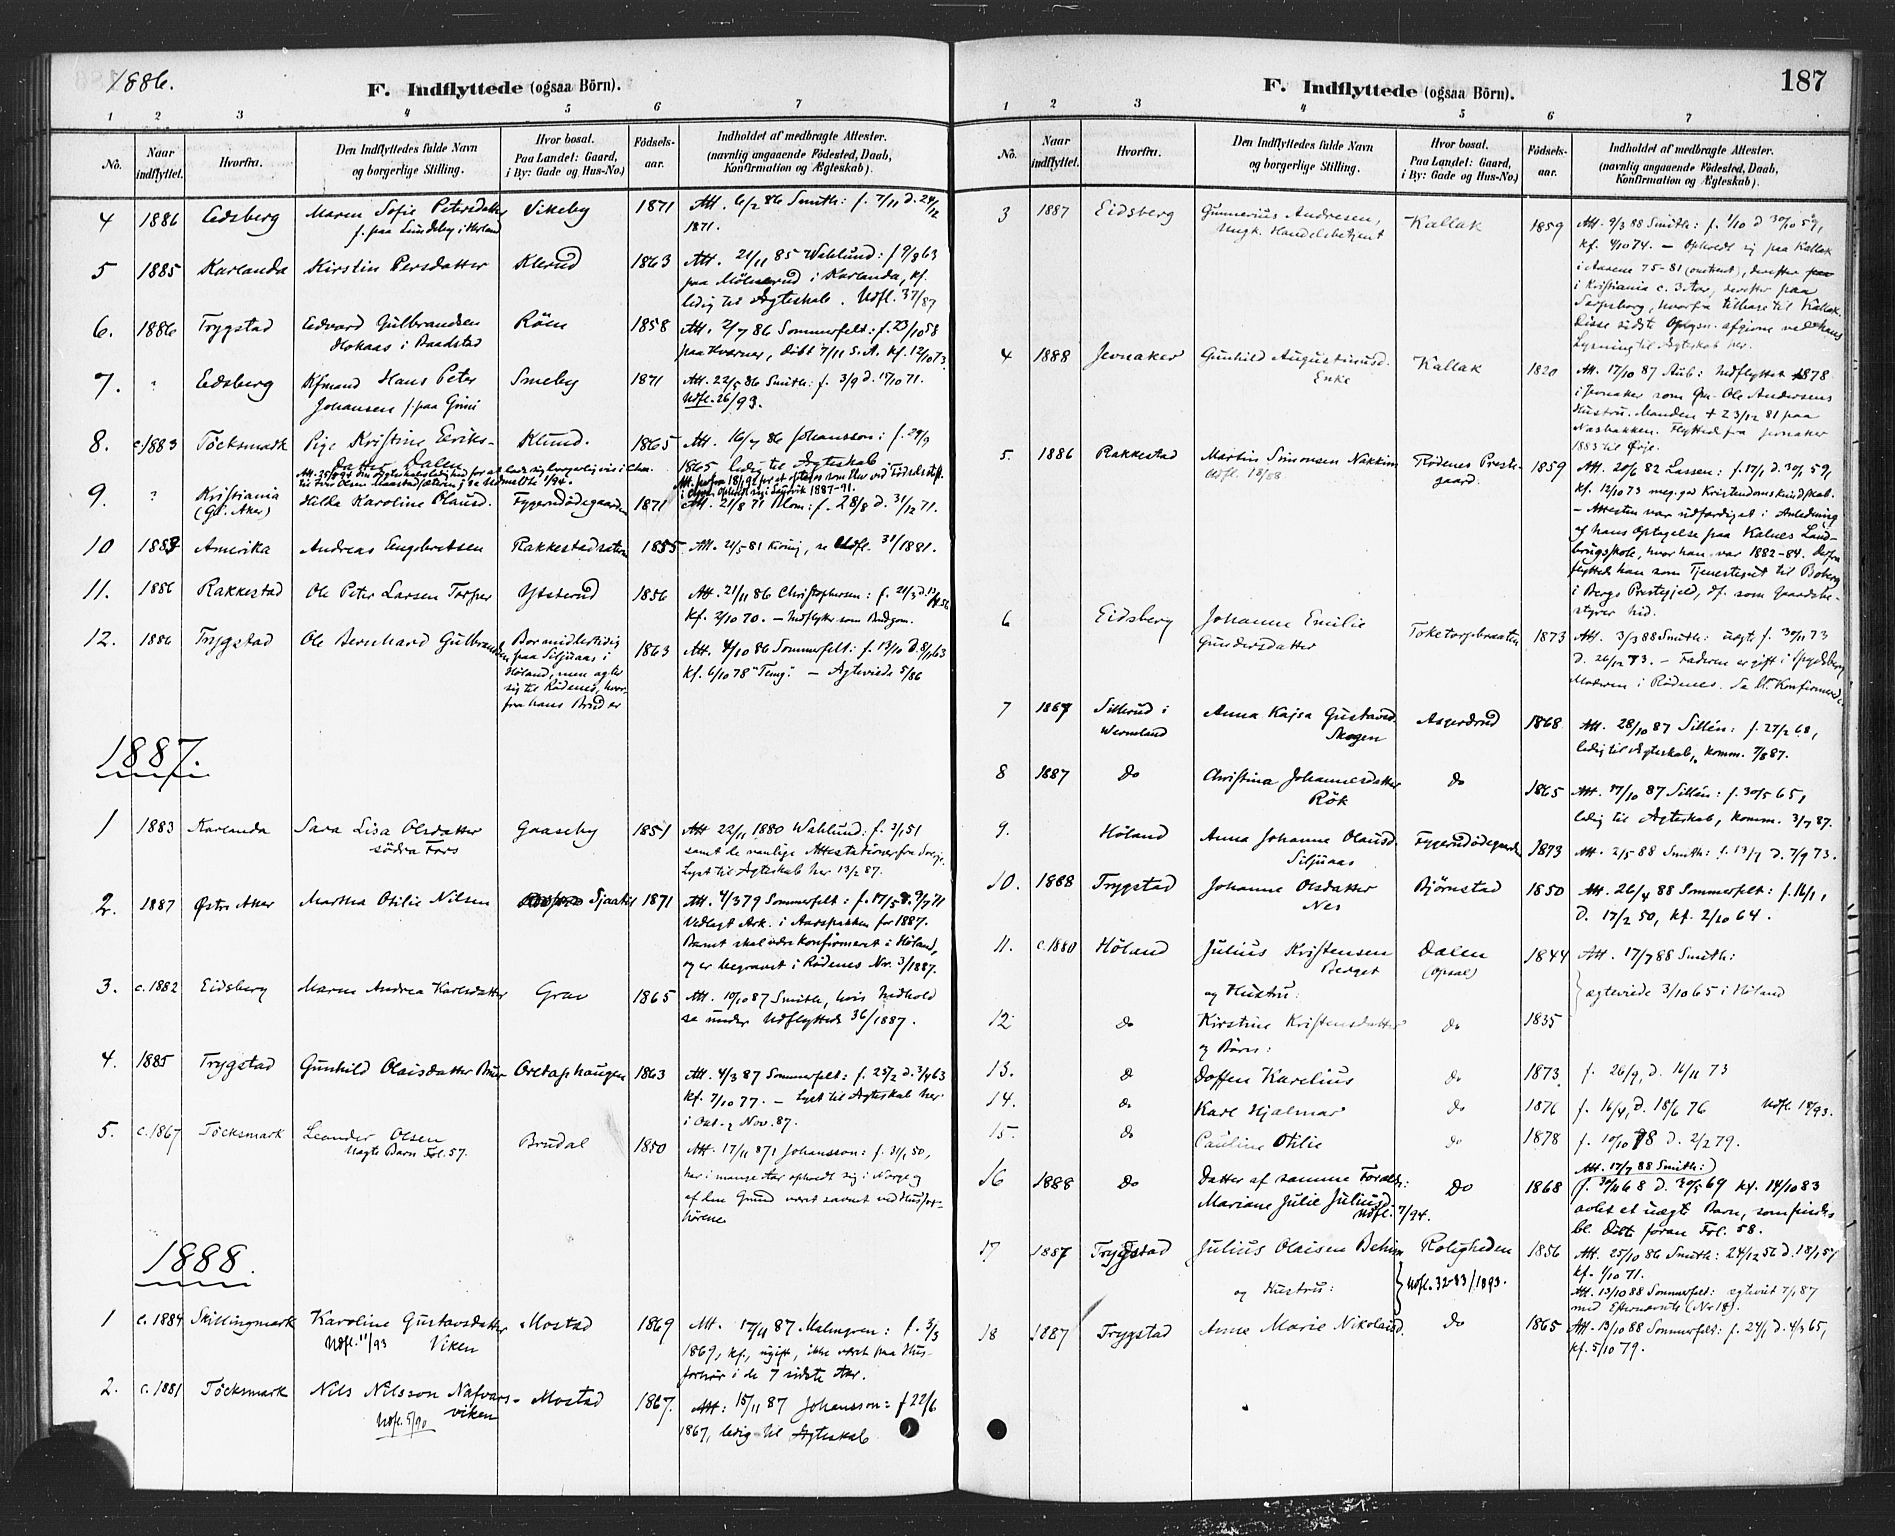 1886.
F. Indflyttede (ogsaa Börn).
1 2 3 4 5 6 7
No.
Naar indflyttet.
Hvorfra.
Den Indflyttedes fulde Navn og borgerlige Stilling.
Hvor bosat. Paa Landet: Gaard, i By: Gade og Hus-No.)
Födsels-aar.
Indholdet af medbragte Attester. (navnlig angaaende Födested, Daab, Konfirmation og Ægteskab).
4 1886 Edsberg Maren Sofie Petersdatter Vikeby 1871 Att. 6/2 86 Smith: f. 7/11 d. 24/12
f. paa Lundeby i 1871.
5 1885 Karlanda Kirstin Persdatter Klerud 1863 Att. 21/11 85 Wahlund: f 9/8 63
paa i Karlanda, kf.
ledig til Ægteskab. Udfl. 37/87
6. 1886 Trygstad Edvard Gulbrandsen Röen 1858 Att. 2/7 86 Sommerfelt: f. 23/10 58
i Baadstad paa Kvarner, döbt 7/11 s. A. kf. 12/10 73.
7. " Edsberg Kfmand Hans Peter Smeby 1871 Att. 22/5 86 Smith: f. 3/9 d. 17/10 71.
Johansen f. paa Udfl. 26/93.
8. c. 1883 Töcksmark Pige Kristine Eriks- Klund. 1865 Att. 16/7 86 Johansson: f. 29/9
datter Dalen 1865 ledig til Ægteskab
9. " Kristiania Hilda Karoline Olausd. 1871 Att. 21/8 71 Blom: f. 28/8 d. 31/12 71.
(Gl. Aker)
10 Amerika Andreas Engebretsen 1855 Att. 21/5 81 se Udfl. 31/1881.
11. 1886 Rakkestad Ole Peter Larsen Torper Ysterud 1856 Att. 21/11 86 Christophersen: f. 21/3
kf. 2/10 70. – Indflytter som Brudgom.
12. 1886 Trygstad Ole Bernhard Gulbrandsen Bor midlertidig 1863 Att. 4/10 86 Sommerfelt: f. 13/10 d. 8/11 63
paa Siljuaas i kf. 6/10 78 – Ægteviede 5/86
Höland, men agter
sig til Rödenes, hvor-
fra hans Brud er
1887.
1 1883 Karlanda Sara Lisa Olsdatter Gaaseby 1851 Att 22/11 1880 Wahlund: f. 3/1 51
södra Fors samt de vanlige Attestationer fra
Lyst til Ægteskab her 13/2 87.
2. 1887 Østre Aker Martha Otilie Nilsen 1871 Att. 4/3 79 Sommerfelt: f. 17/5 d. 9/7 71
Vedlagt Ark. i Aarspakken for 1887.
Barnet skal være konfirmeret i Höland,
og er begravet i Rödenes Nr. 3/1887.
3. c. 1882 Eidsberg Maren Andrea Karlsdatter Grav 1865 Att. 10/10 87 Smith, hvis Indhold
se under Udflyttede 36/1887.
4. 1885 Trygstad Gunhild Olaisdatter 1863 Att. 4/3 87 Sommerfelt: f. 25/2 d. 3/4 63
kf. 7/10 77. – Lyst til Ægteskab her
i Okt. & Nov. 87.
5. c. 1867 Töcksmark Leander Olsen Brudal 1850 Att. 17/11 87 Johansson: f. 31/1 50,
Uægte Barn 57. har i mange Aar opholdt sig i Norge og
af den Grund været savnet ved Husfor-
hörene
1888.
1 c. 1884 Skillingmark Karoline Gustavsdatter Mostad 1869 Att. 17/11 87 Malmgren: f. 3/3
Udfl. 11/93 Viken 1869, kf., ugift, ikke været paa Hus-
forhör i de 7 sidste Aar.
2. c. 1881 Töcksmark Nils Nilsson Nafvars- Mostad 1867. Att: 15/11 87 Johansson: f 22/6
Udfl. 5/90 viken 1867, ledig til Ægteskab
187
F. Indflyttede (ogsaa Börn).
1 2 3 4 5 6 7
No.
Naar indflyttet.
Hvorfra.
Den Indflyttedes fulde Navn og borgerlige Stilling.
Hvor bosat. Paa Landet: Gaard, i By: Gade og Hus-No.)
Födsels-aar.
Indholdet af medbragte Attester. (navnlig angaaende Födested, Daab, Konfirmation og Ægteskab).
3 1887 Eidsberg Gunnerius Andresen, Kallak 1859 Att. 9/3 88 Smith: f. 1/10 d 30/10 59,
Ungk. Handelsbetjent kf. 4/10 74. – Opholdt sig paa Kallak
i Aasene 75-81 (omtrent), derefter
i Kristiania c. 3 Aar, derefter paa
Sarpsborg, hvorfra tilbage til Kallak.
Disse sidste Oplysn. afgivne ved hans
Lysning til Ægteskab her.
4 1888 Jevnaker Gunhild Augustinusd. Kallak 1820 Att. 17/10 87 Aub: Indflyttet 1878
Enke i Jevnaker som Gm. Ole Andersens
Hustru. Manden + 23/12 81 paa
Næsbakken. Flyttede fra Jevnaker
1883 til
5. 1886 Rakkestad Martius Simonsen Nakkim Rødenes Preste- 1859 Att. 20/6 82 Lassen: f. 17/1 d. 30/1 59,
Udfl. 18/88 gaard. kf. 12/10 73 meg. god Kristendomskundskab.
– Attesten var udfærdiget i Anledning
af hans Optagelse paa Kalnes Land-
brugsskole, hvor han var 1882-84. Derfra
flyttede han som Tjenestegut til Boberg
i Bergs Prestegjeld, df. som Gaardsbe-
styrer hid.
6 Eidsberg Johanne Emilie 1873 Att. 3/3 88 Smith: uægte f. 30/11 73
Gundersdatter d. 26/12 73. – Faderen er gift i Spydeberg
Moderen i Rödenes.
7 Sillerud i Anna Kajsa Gustavsd. Asgerdrud 1868 Att. 28/10 87 Sillén: f. 27/2 68,
Wermland Skogen ledig til Ægteskab, komm. 7/8 87.
8 1887 Do Christina Johannesdatter Do 1865 Att. 17/10 87 Sillén: f. 30/5 65,
Rök ledig til Ægteskab, komm. 3/7 87.
9. Höland Anna Johanne Olausd. 1873 Att. 2/5 88 Smith: f. 13/7 d. 7/9 73.
Siljuaas
10. 1888 Trygstad Johanne Olsdatter Bjørnstad 1850 Att. 26/4 88 Sommerfelt: f. 16/1,
Nes D. 17/2 50, kf. 2/10 64.
11. c. 1880 Höland Julius Kristensen Dalen 1844 Att. 17/7 88 Smith:
Berget (Opsal)
og Hustru: ægteviede 3/10 65 i Höland
12 Do Kirstine Kristensdatter Do 1835
og Børn:
13. Do Doffen Karelius Do 1873 f. 26/9, d. 16/11 73
14. Do Karl Hjalmar Do 1876 f. 16/4, d. 18/6 76 Udfl. 18/93.
15. Do Pauline Otilie Do 1878 f. 10/10 78 d. 2/2 79.
16 1888 Do Datter af samme Foræld.: Do 1868 Att. 17/7 88 Smith:)
Mariane Julie Juliusd. Udfl. 7/94. (f. 30/4 68 d. 30/5 69 kf. 14/10 83
avlet et uægte Barn, som findes
bl. Döbte foran Frl. 58.
17 1887 Trygstad Julius Olaisen Roligheden 1856 Att. 25/10 86 Smith: 24/12 56 d. 18/1 57
kf. 1/10 71.
og Hustru: Udfl. 32-33/1893. Att. 13/10 88 Sommerfelt: ægteviet 7/1 87
med Efternævnte (Nr 18).
18 1887 Trygstad Anne Marie Nikolaisd. Do 1865 Att. 13/10 88 Sommerfelt: f. 24/1 d. 4/3 65,
kf. 5/10 79.